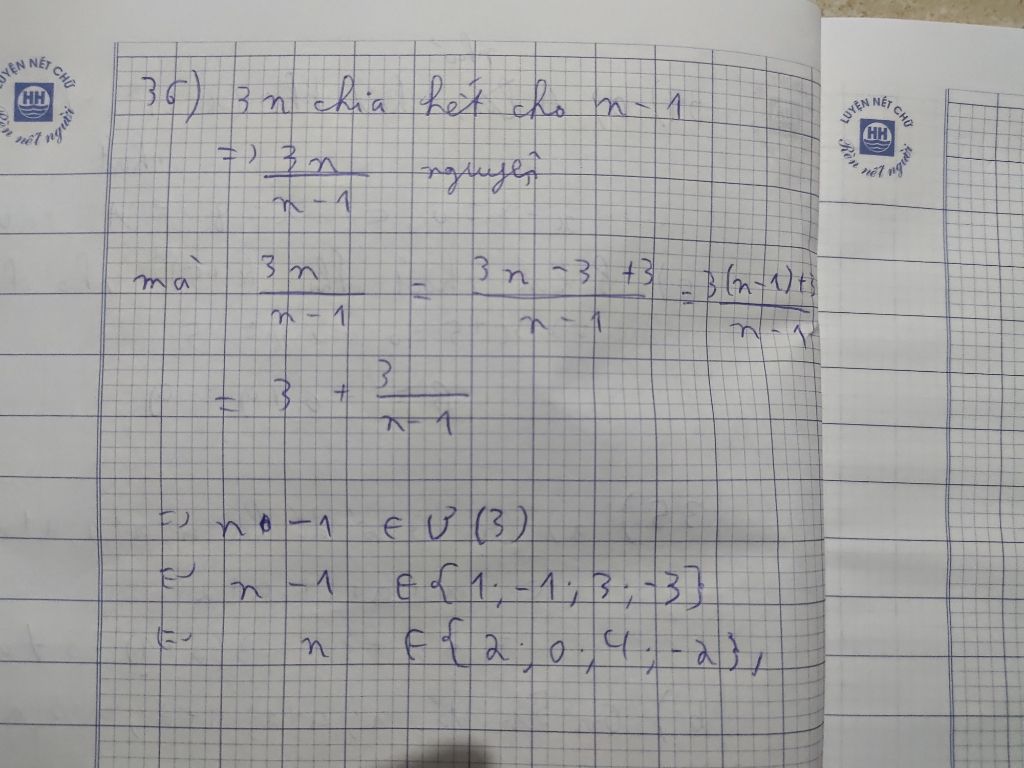 LUYỆN NÉT CHỮ
HH
Rèn nết người
36) 3n chia hết cho n - 1
=> 3n / n - 1 nguyên
mà 3n / n - 1 = 3n - 3 + 3 / n - 1 = 3(n - 1) + 3 / n - 1
= 3 + 3 / n - 1
=> n - 1 ∈ Ư(3)
<=> n - 1 ∈ {1; -1; 3; -3}
<=> n ∈ {2; 0; 4; -2},
LUYỆN NÉT CHỮ
HH
Rèn nết người